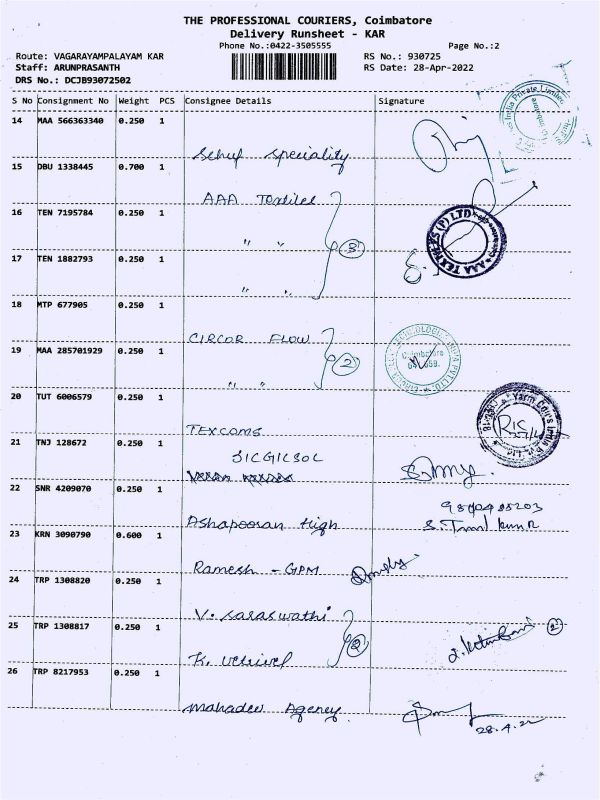 THE PROFESSIONAL COURIERS, Coimbatore
Delivery Runsheet - KAR
Phone No.:0422-3505555
Page No.:2
Route: VAGARAYAMPALAYAM KAR
RS No.: 930725
Staff: ARUNPRASANTH
RS Date: 28-Apr-2022
DRS No.: DCJB93072502
S No Consignment No Weight PCS Consignee Details Signature
14 MAA 566363340 0.250 1
speciality
15 DBU 1338445 0.700 1
AAA Textiles
16 TEN 7195784 0.250 1
" "
3
AAA TEXTILES (P) LTD
17 TEN 1882793 0.250 1
" "
18 MTP 677905 0.250 1
CIRCOR FLOW
19 MAA 285701929 0.250 1
2
Coimbatore
" "
20 TUT 6006579 0.250 1
TEXCOMS
21 TNJ 128672 0.250 1
22 SNR 4209070 0.250 1
Ashapooran High
23 KRN 3090790 0.600 1
Ramesh - GPM
24 TRP 1308820 0.250 1
V. Saraswathi
25 TRP 1308817 0.250 1
2
2
K. Vetrivel
26 TRP 8217953 0.250 1
Mahadev Agency
28.4.22